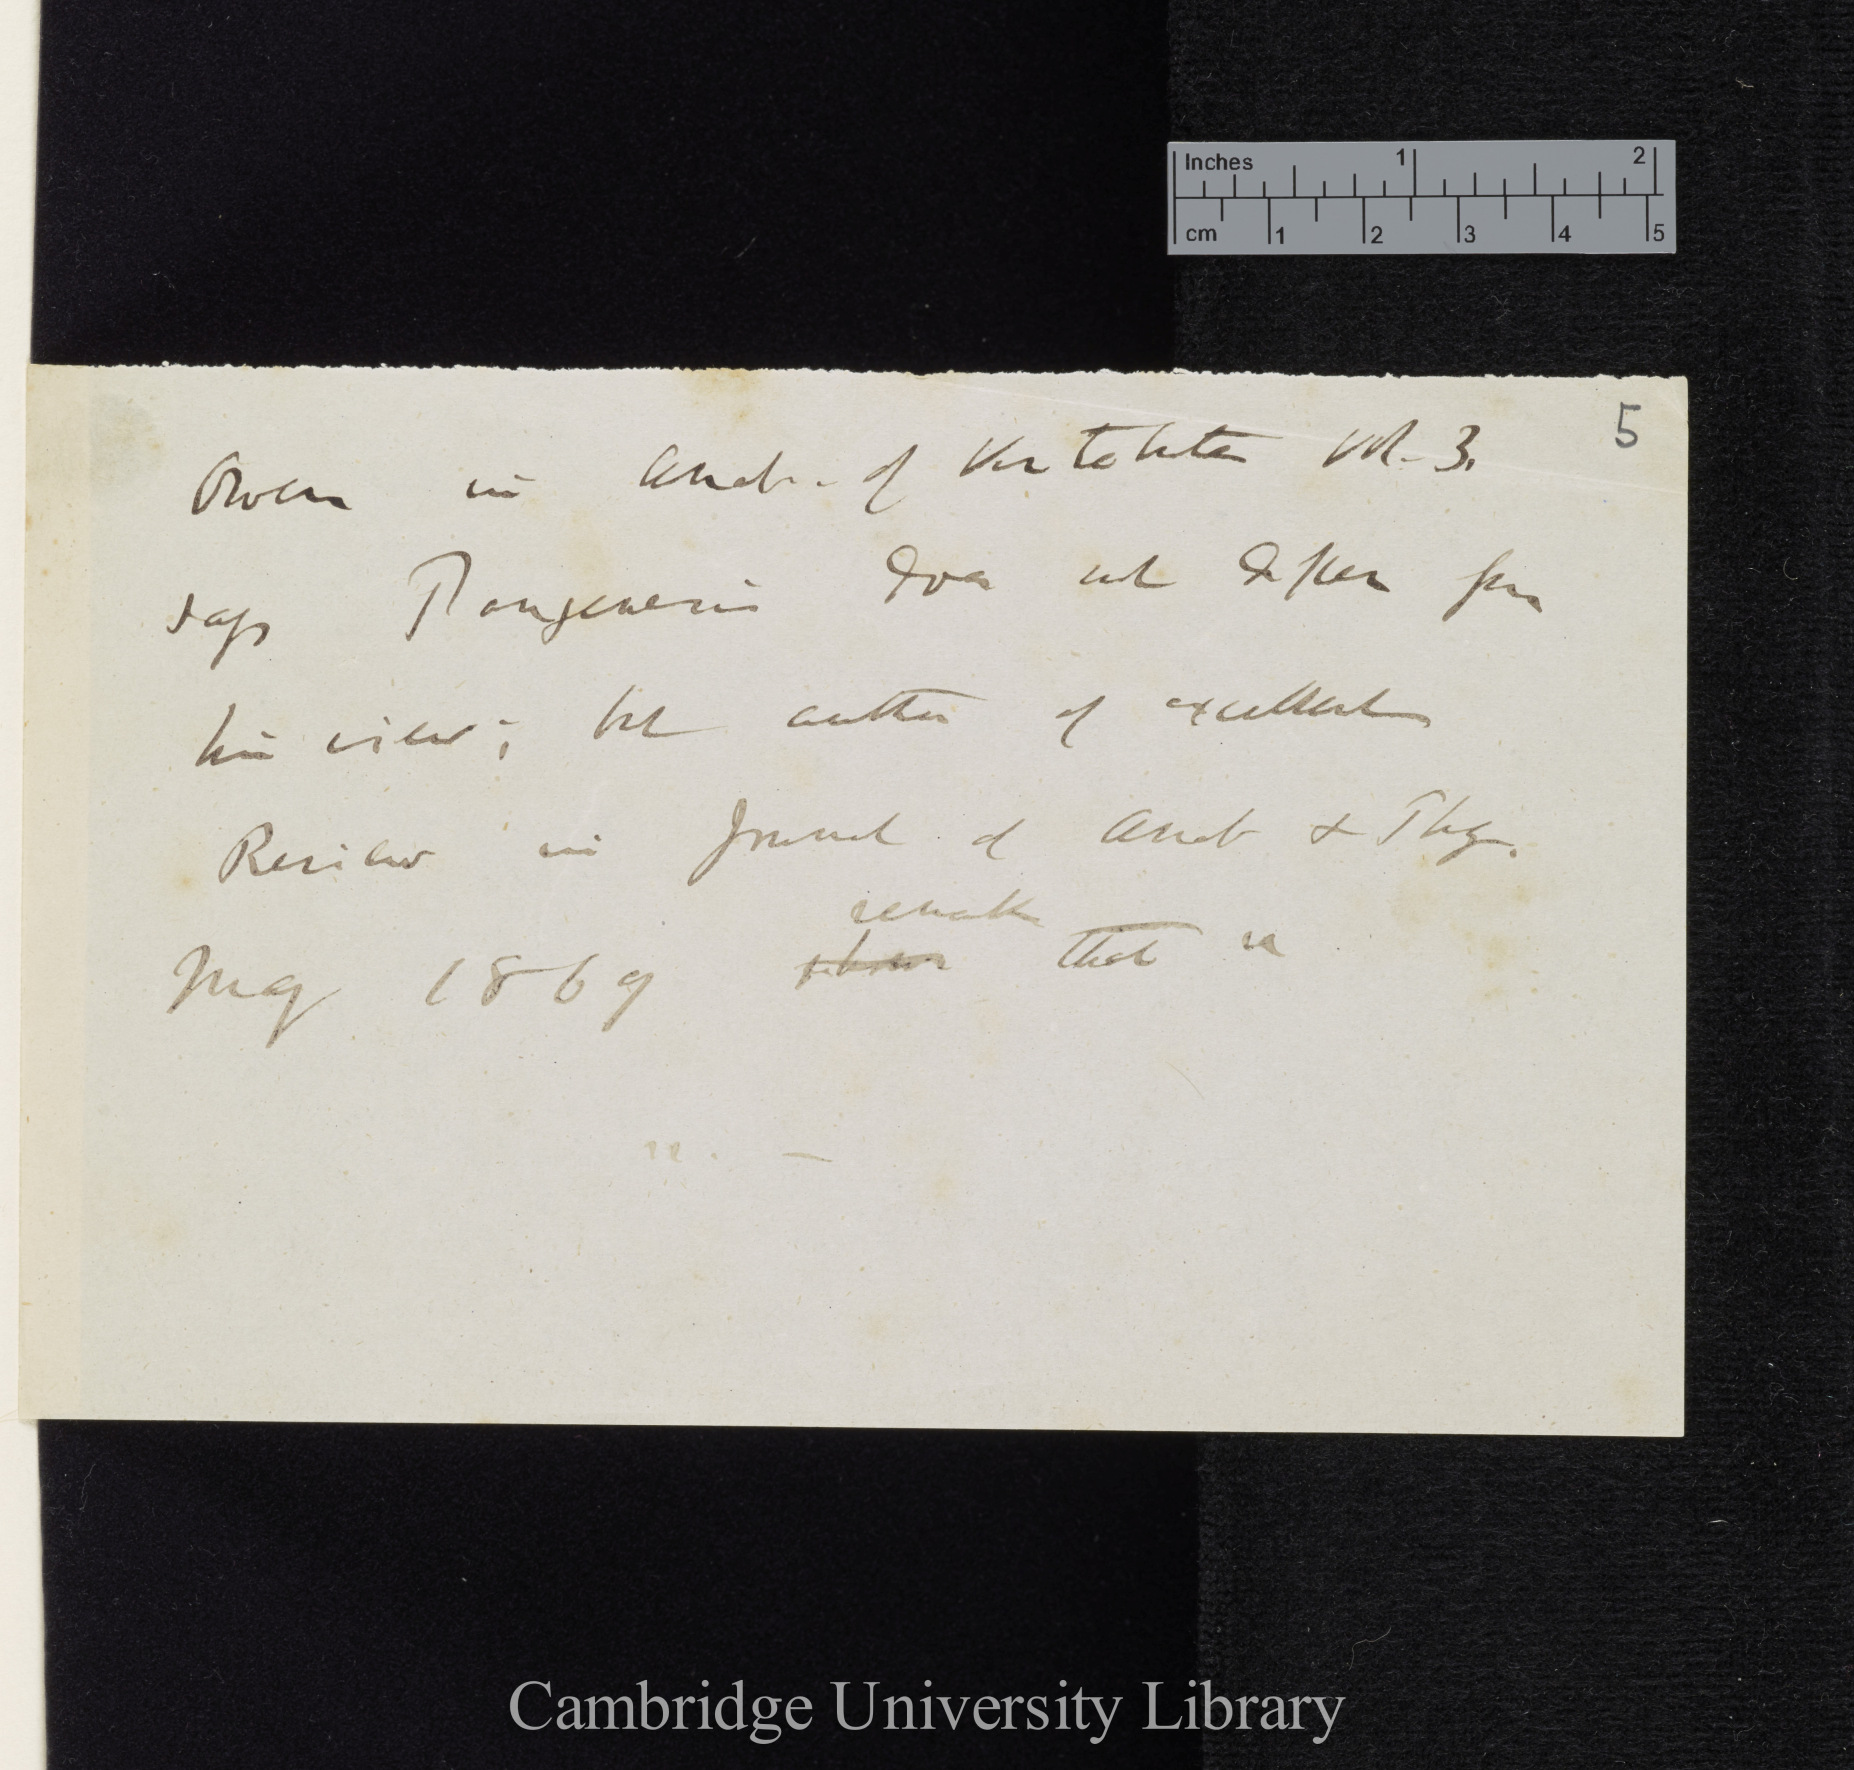 Inches 1 2
cm 1 2 3 4 5
5
Owen in Anat. of Vertebrata vol. 3.
says Pangenesis does not differ from
his view; but author of excellent
Review in Journal of Anat & Phy.
remark
May 1869 show that
Cambridge University Library